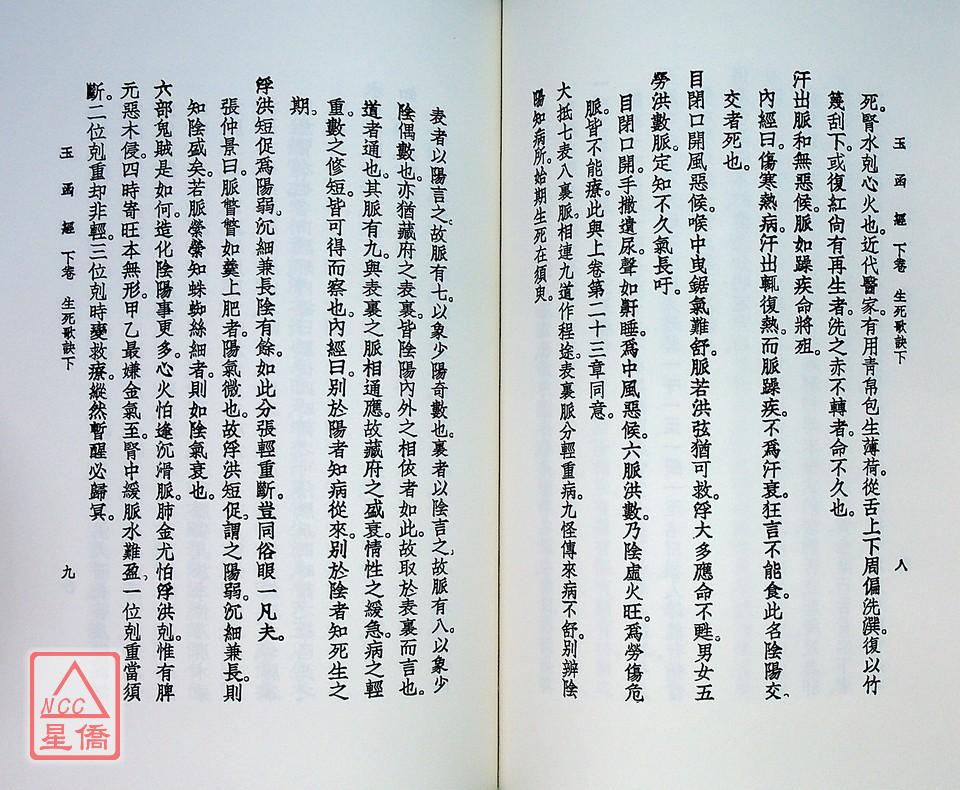 玉函經 下卷 生死歌訣下 八
死。腎水剋心火也。近代醫家。有用靑帛包生薄荷。從舌上下周偏洗潠。復以竹
篾刮下。或復紅尙有再生者。洗之赤不轉者。命不久也。
汗出脈和無惡候。脈如躁疾命將殂。
內經曰。傷寒熱病。汗出輒復熱。而脈躁疾。不爲汗衰。狂言不能食。此名陰陽交。
交者死也。
目閉口開風惡候。喉中曳鋸氣難舒。脈若洪弦猶可救。浮大多應命不甦。男女五
勞洪數脈。定知不久氣長吁。
目閉口開。手撒遺尿。聲如鼾睡。爲中風惡候。六脈洪數。乃陰虛火旺。爲勞傷危
脈。皆不能療。此與上卷第二十三章同意。
大抵七表八裏脈。相連九道作程途。表裏脈分輕重病。九怪傳來病不舒。別辨陰
陽知病所。始期生死在須臾。
表者以陽言之。故脈有七。以象少陽奇數也。裏者以陰言之。故脈有八。以象少
陰偶數也。亦猶藏府之表裏。皆陰陽內外之相依者如此。故取於表裏而言也。
道者通也。其脈有九。與表裏之脈相通應。故藏府之盛衰。情性之緩急。病之輕
重。數之修短。皆可得而察也。內經曰。別於陽者。知病從來。別於陰者。知死生之
期。
浮洪短促爲陽弱。沉細兼長陰有餘。如此分張輕重斷。豈同俗眼一凡夫。
張仲景曰。脈瞥瞥如羹上肥者。陽氣微也。故浮洪短促。謂之陽弱。沉細兼長。則
知陰盛矣。若脈縈縈知蛛蜘絲細者。則如陰氣衰也。
六部鬼賊是如何。造化陰陽事更多。心火怕逢沉滑脈。肺金尤怕浮洪剋。惟有脾
元惡木侵。四時寄旺本無形。甲乙最嫌金氣至。腎中緩脈水難盈。一位剋重當須
斷。二位剋重却非輕。三位剋時變救療。縱然暫醒必歸冥。
玉函經 下卷 生死歌訣下 九
NCC
星僑